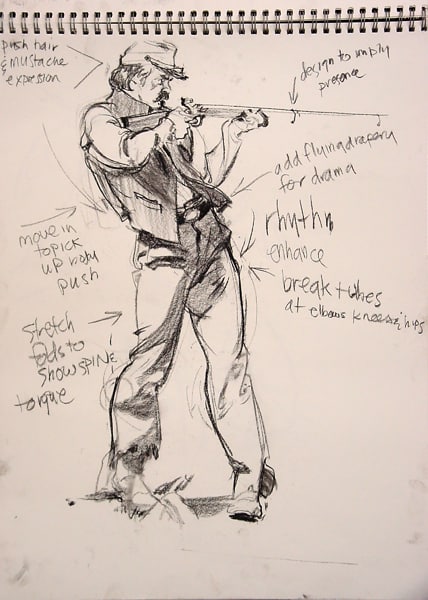 push hair
& mustache
expression
design to imply
presence
add flying drapery
for drama
rhythm
enhance
break tubes
at elbows knees & hips
move in
to pick
up body
push
stretch
folds to
show SPINE
torque